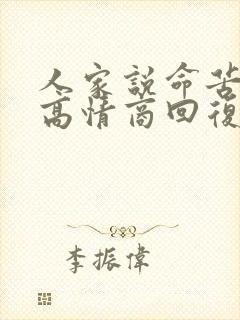 人家說命苦
高情商回復
李振偉